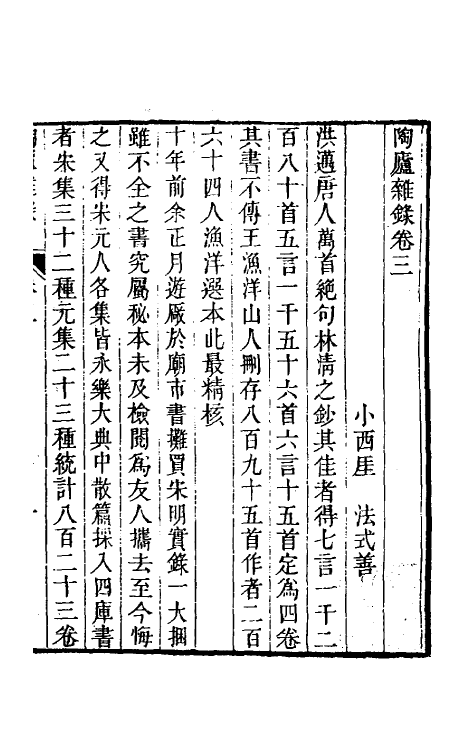 陶廬雜錄卷三
小西厓　法式善
洪邁唐人萬首絕句林淸之鈔其佳者得七言一千二
百八十首五言一千五十六首六言十五首定爲四卷
其書不傳王漁洋山人刪存八百九十五首作者二百
六十四人漁洋選本此最精核
十年前余正月遊厰於廟市書攤買宋明實錄一大捆
雖不全之書究屬秘本未及檢閱爲友人攜去至今悔
之又得宋元人各集皆永樂大典中散篇採入四庫書
者宋集三十二種元集二十三種統計八百二十三卷